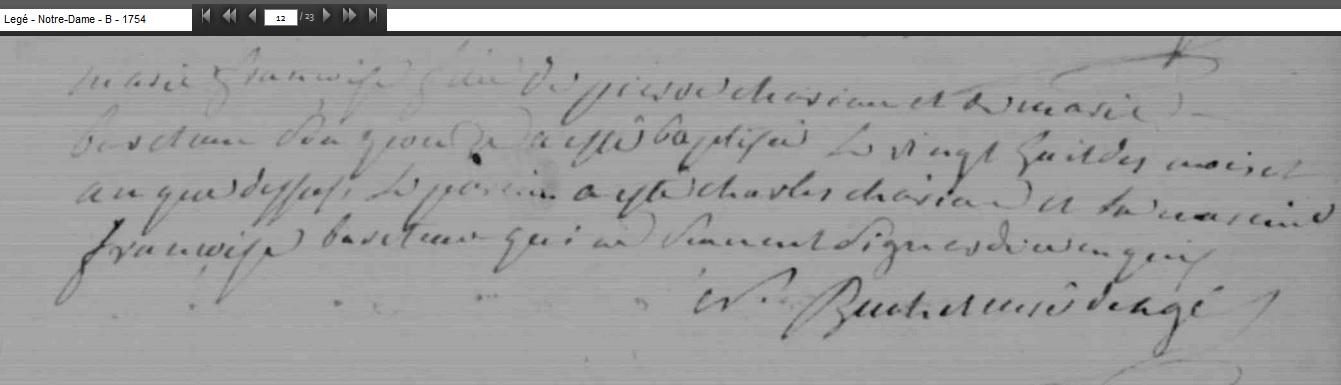 Legé - Notre-Dame - B - 1754
12 / 23
marie françoise fille de pierre charian et de marie
bureteau née du jour a esté baptisée le vingt huit des mois et
an que dessus, le parein a esté charles charian et la mareine
françoise bureteau qui ne scavent signer de ce enquis
Barthelemi de legé